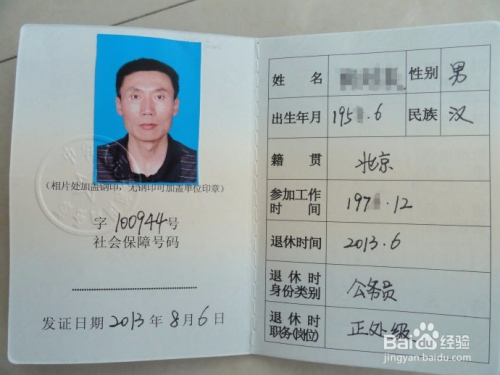 (相片处加盖钢印，无钢印可加盖单位印章)
字100944号
社会保障号码
发证日期2013年8月6日
姓名 性别 男
出生年月 195 .6 民族 汉
籍贯 北京
参加工作
时间 197 .12
退休时间 2013.6
退休时
身份类别 公务员
退休时
职务(岗位) 正处级
Baidu经验
jingyan.baidu.com